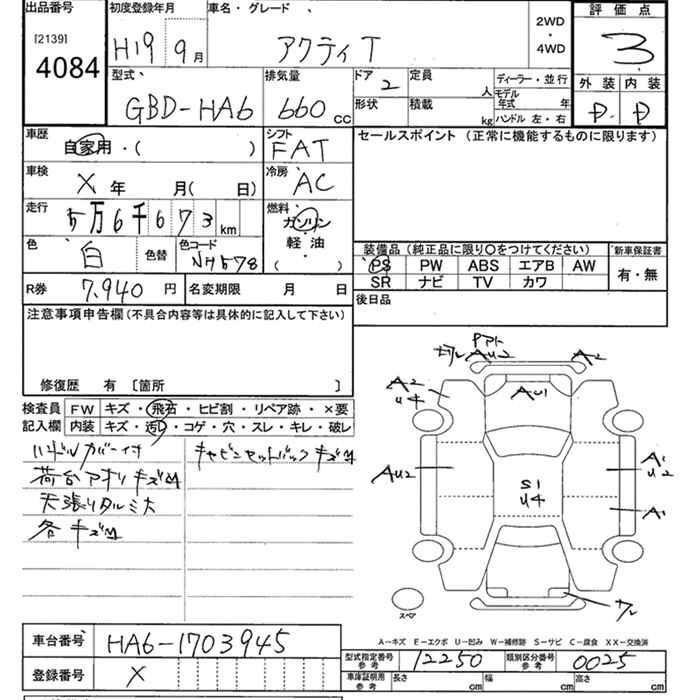 出品番号 初度登録年月 車名・グレード 評価点
[2139] 2WD
4084 H19 9月 アクティT ・ 3
4WD
型式 排気量 ドア 定員 ディーラー・並行 外装 内装
GBD-HA6 660cc 2 人 モデル年式 年 D D
形状 積載 kg ハンドル 左・右
車歴 自家用・( ) シフト FAT セールスポイント (正常に機能するものに限ります)
車検 X 年 月( 日) 冷房 AC
走行 5万6千673km 燃料 ガソリン
軽油
( ・ )
色 白 色替 色コード NH578
装備品 (純正品に限り○をつけてください) 新車保証書
PS PW ABS エアB AW 有・無
SR ナビ TV カワ
R券 7,940円 名変期限 月 日 後日品
注意事項申告欄(不具合内容等は具体的に記入して下さい)
修復歴 有 [箇所 ]
検査員 FW キズ・飛石・ヒビ割・リペア跡・×要
記入欄 内装 キズ・汚れ・コゲ・穴・スレ・キレ・破レ
ハンドルカバー付 キャビンセットバックキズM
荷台アオリキズM
天張りタルミ大
各キズM
AU2 A2
A2 AU1
U4
AU2 A1
U2
S1
U4
A1
スペア
A-キズ E-エクボ U-凹み W-補修跡 S-サビ C-腐食 XX-交換済
車台番号 HA6-1703945
型式指定番号 参考 12250 類別区分番号 参考 0025
登録番号 X
車庫証明用 参考 長さ cm 幅 cm 高さ cm